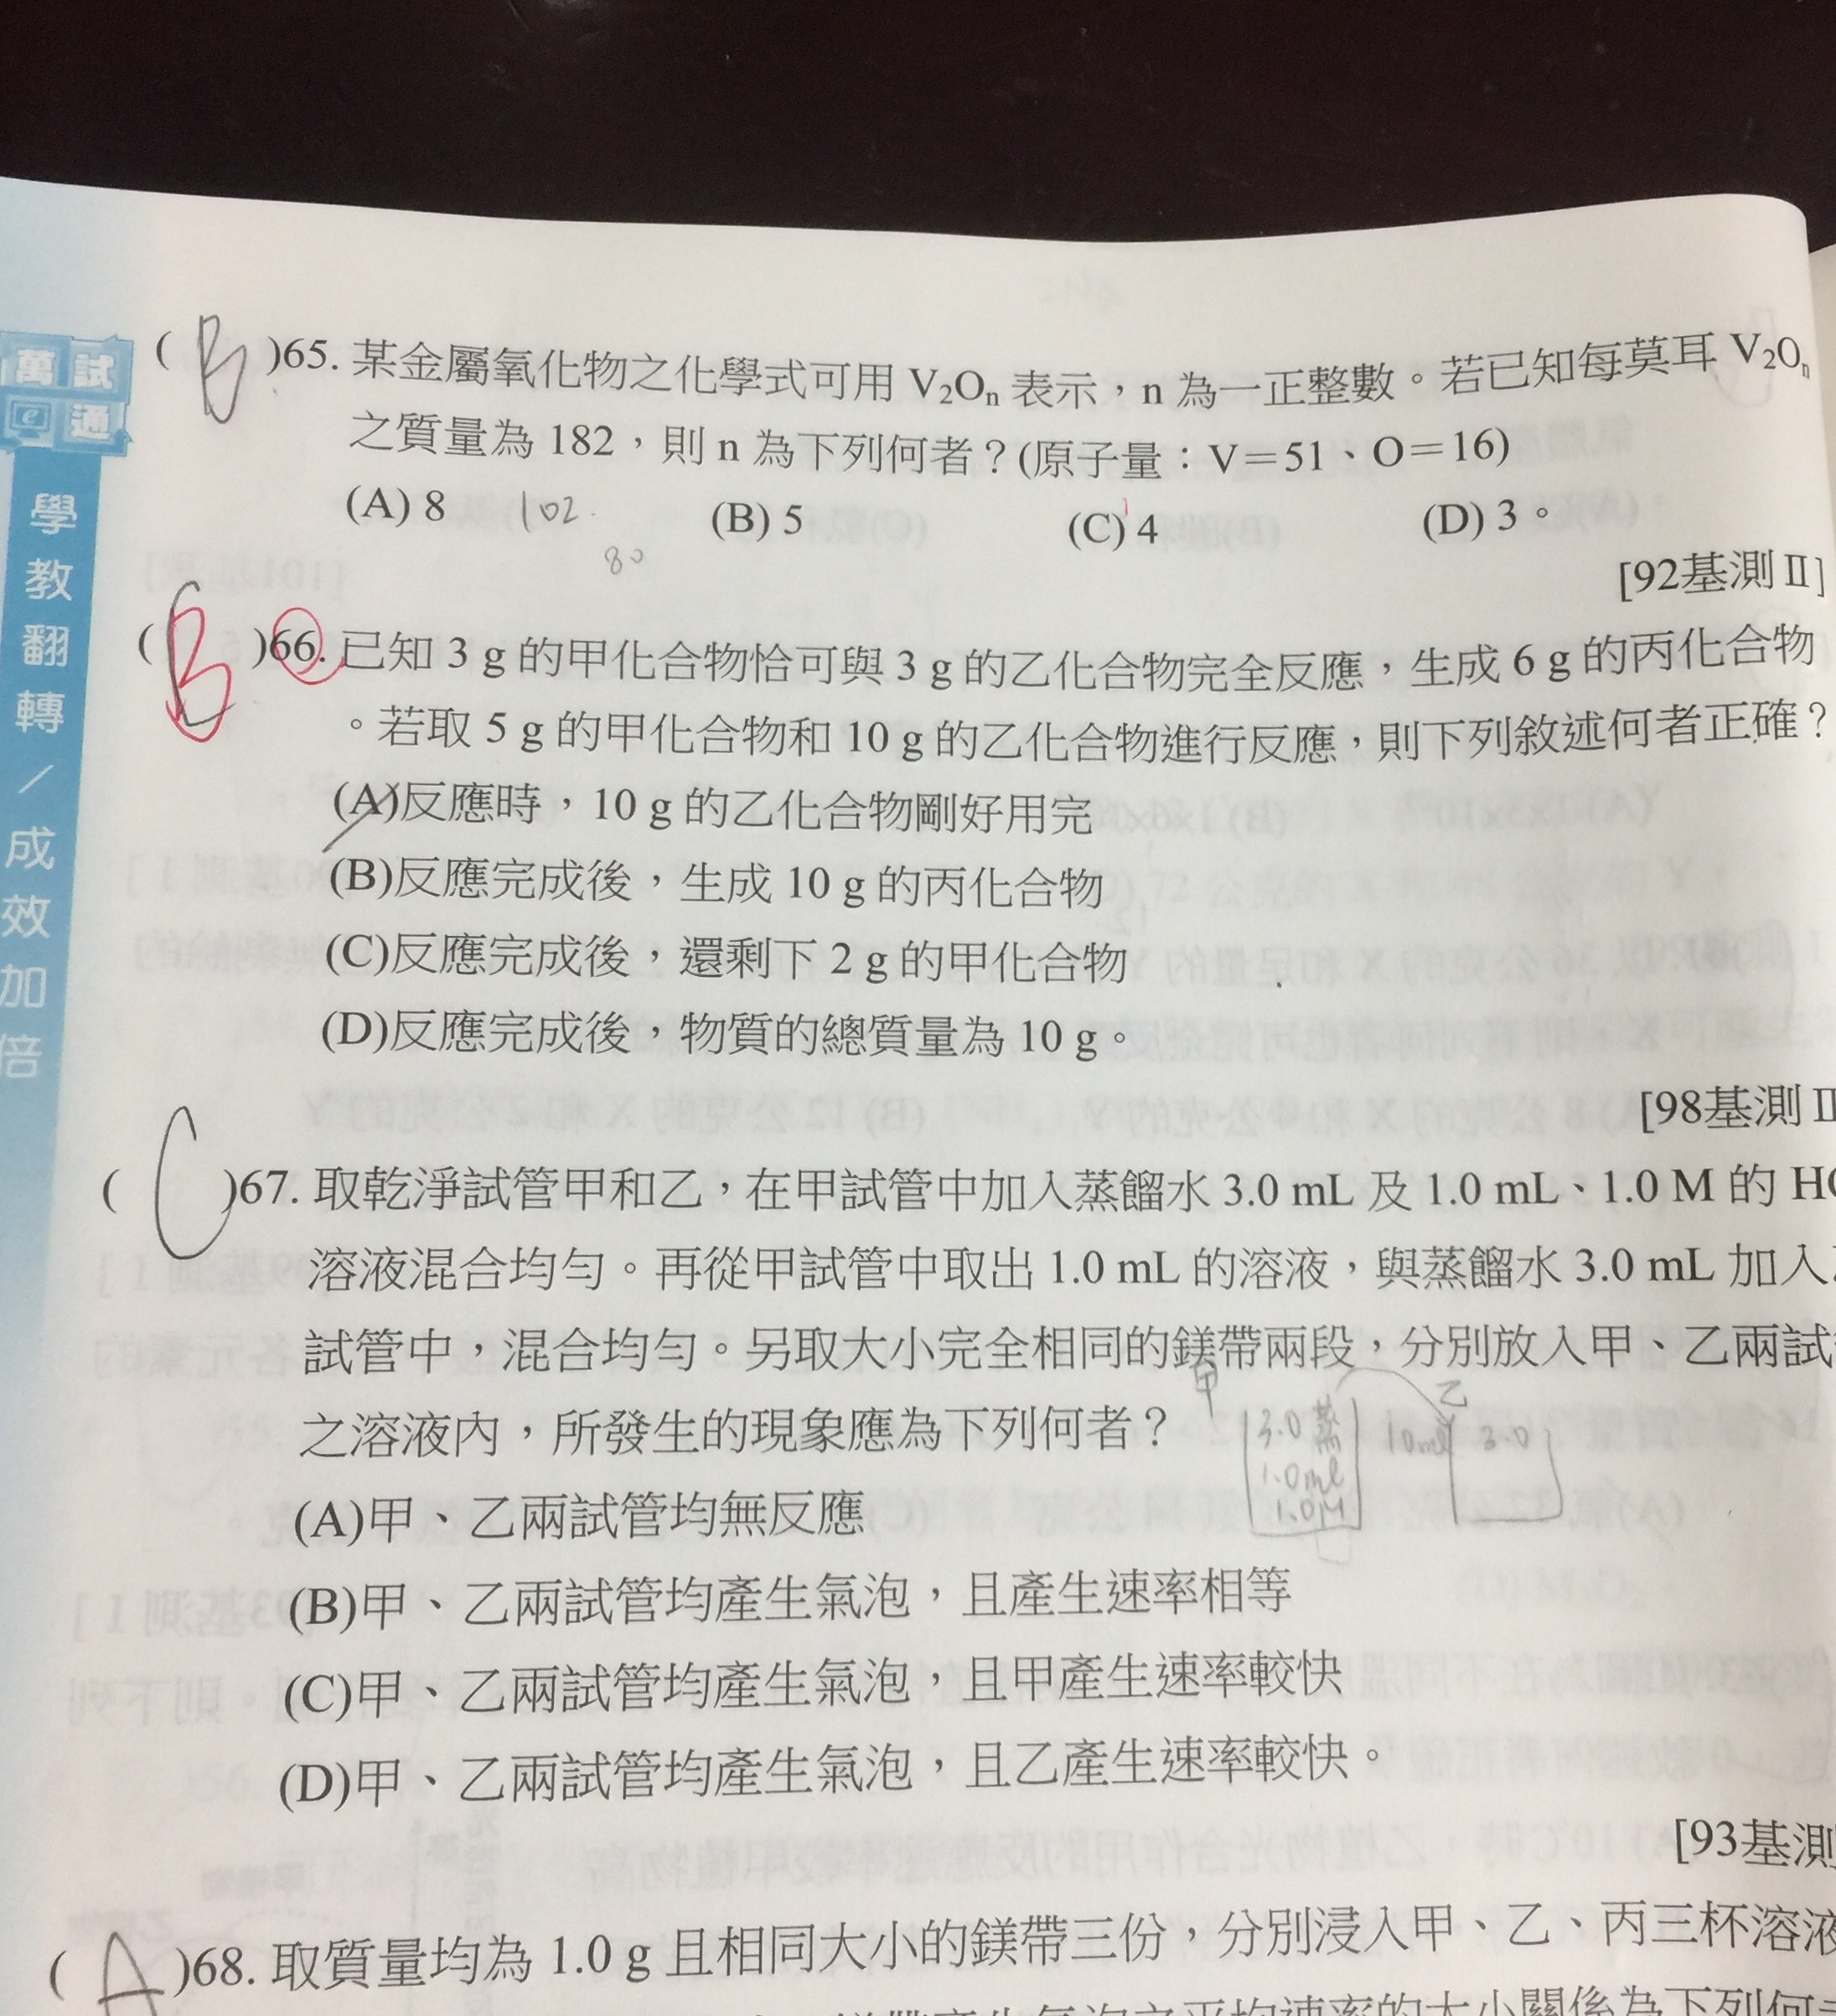 萬試
e通
學教翻轉／成效加倍
( B )65. 某金屬氧化物之化學式可用 V₂Oₙ 表示，n 為一正整數。若已知每莫耳 V₂Oₙ
之質量為 182，則 n 為下列何者？(原子量：V＝51、O＝16)
(A) 8 102 (B) 5 (C) 4 (D) 3。
80
[92基測Ⅱ]
( B )66. 已知 3 g 的甲化合物恰可與 3 g 的乙化合物完全反應，生成 6 g 的丙化合物
。若取 5 g 的甲化合物和 10 g 的乙化合物進行反應，則下列敘述何者正確？
(A)反應時，10 g 的乙化合物剛好用完
(B)反應完成後，生成 10 g 的丙化合物
(C)反應完成後，還剩下 2 g 的甲化合物
(D)反應完成後，物質的總質量為 10 g。
[98基測Ⅱ
( C )67. 取乾淨試管甲和乙，在甲試管中加入蒸餾水 3.0 mL 及 1.0 mL、1.0 M 的 H
溶液混合均勻。再從甲試管中取出 1.0 mL 的溶液，與蒸餾水 3.0 mL 加入
試管中，混合均勻。另取大小完全相同的鎂帶兩段，分別放入甲、乙兩試
之溶液內，所發生的現象應為下列何者？
甲 乙
3.0 蒸 10ml 3.0
1.0ml
1.0M
(A)甲、乙兩試管均無反應
(B)甲、乙兩試管均產生氣泡，且產生速率相等
(C)甲、乙兩試管均產生氣泡，且甲產生速率較快
(D)甲、乙兩試管均產生氣泡，且乙產生速率較快。
[93基測
( A )68. 取質量均為 1.0 g 且相同大小的鎂帶三份，分別浸入甲、乙、丙三杯溶液